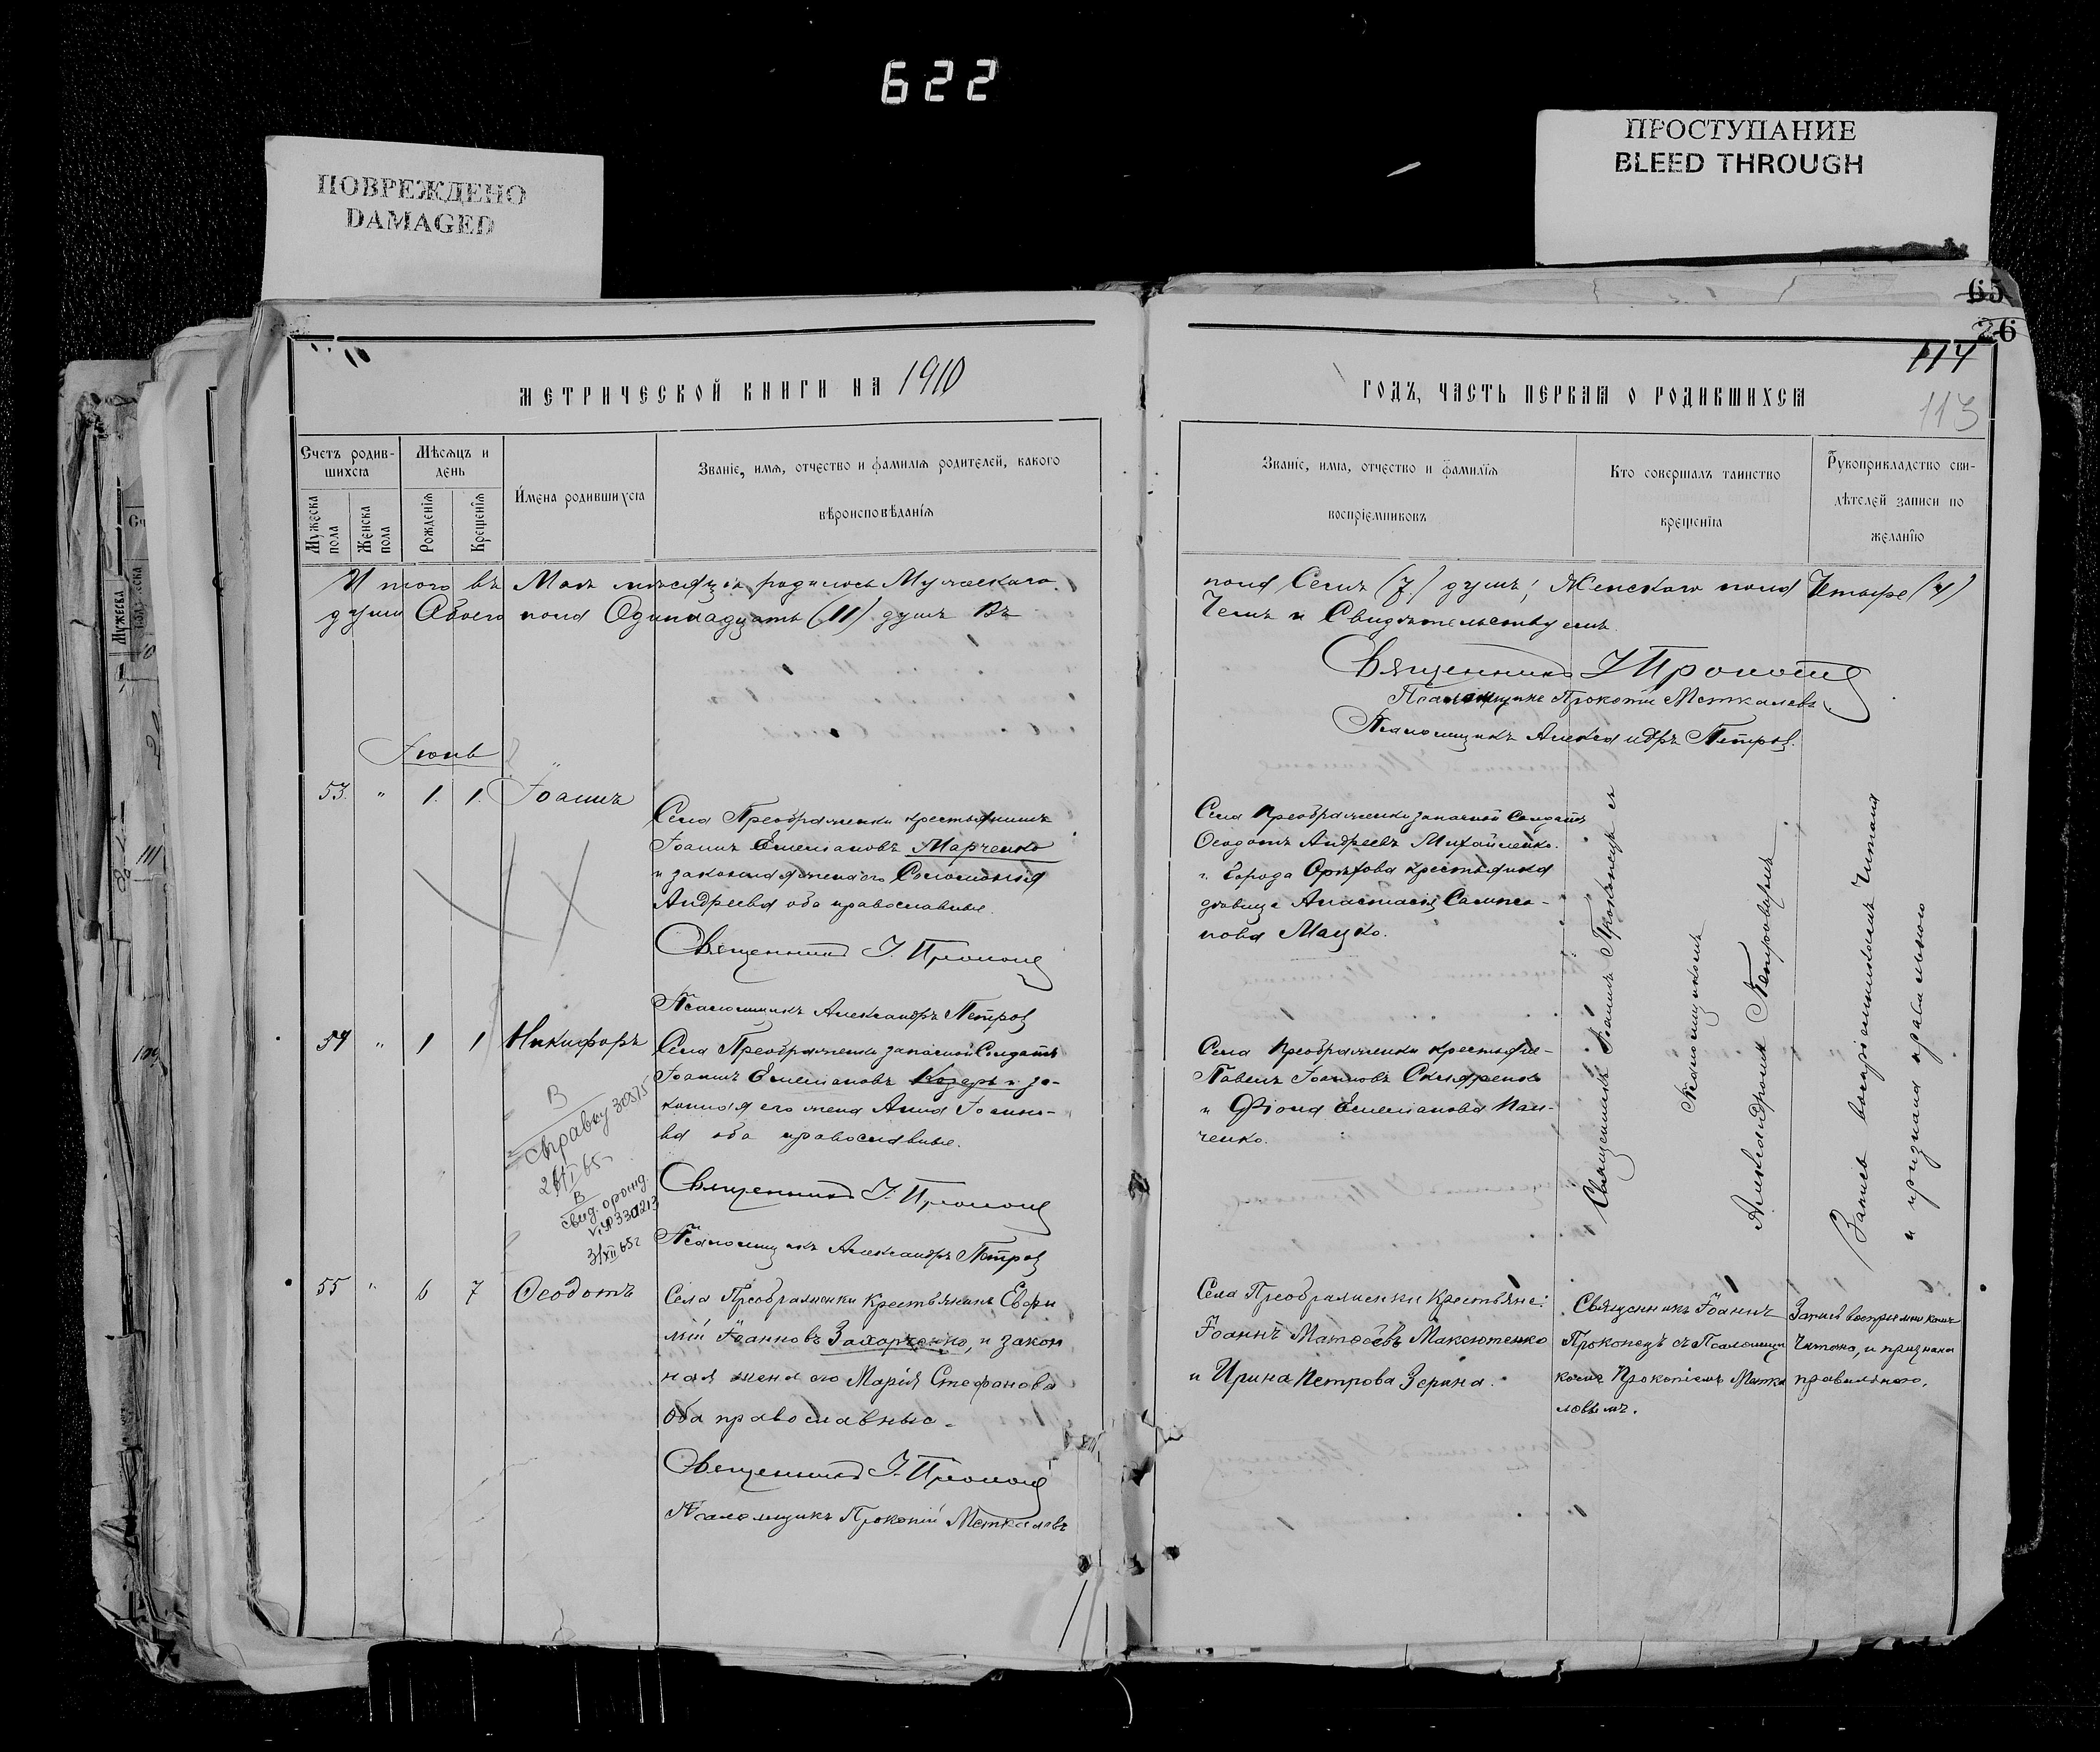 622
ПОВРЕЖДЕНО
DAMAGED
ПРОСТУПАНИЕ
BLEED THROUGH
65
26
114
113
МЕТРИЧЕСКОЙ КНИГИ НА 1910
ГОДЪ, ЧАСТЬ ПЕРВАЯ О РОДИВШИХСЯ
Счетъ родив-
шихся
Мужеска пола
Женска пола
Мѣсяцъ и
день
Рожденія
Крещенія
Имена родившихся
Званіе, имя, отчество и фамилія родителей, какого
вѣроисповѣданія
Званіе, имя, отчество и фамилія
воспріемниковъ
Кто совершалъ таинство
крещенія
Рукоприкладство сви-
дѣтелей записи по
желанію
Итого въ Маѣ мѣсяцѣ родилось Мужескаго
пола Семь (7) душъ; Женскаго пола Четыре (4)
души Обоего пола Одиннадцать (11) душъ Въ
Чемъ и Свидѣтельствуемъ.
Священникъ І Прокопец
Псаломщикъ Прокопій Меткалевъ
Псаломщикъ Александръ Петров
Іюнь
53. " 1. 1. Іоаннъ
Села Преображенки крестьянинъ
Іоаннъ Емеліановъ Марченко
и законная жена его Соломонія
Андреева оба православные.
Священникъ І. Прокопец
Псаломщикъ Александръ Петров
Села Преображенки запасной Солдатъ
Ѳеодотъ Андреевъ Михайленко.
и города Орѣхова крестьянка
дѣвица Анастасія Сампсо-
нова Мацко.
Священникъ Іоаннъ Прокопецъ съ
Псаломщикомъ
Александромъ Петровымъ
Запись воспріемникамъ Читана
и признана правильною
54 " 1 1 Никифоръ
Села Преображенки запасной Солдатъ
Іоаннъ Емеліановъ Козерь и за-
конная его жена Анна Іоанно-
ва оба православные.
Священникъ І. Прокопец
Псаломщикъ Александръ Петров
В
справку 30375
65
В
свид. о рожд.
3/XII 65г
Села Преображенки крестьяне
Павелъ Іоанновъ Скляренко
и Ѳіона Емеліанова Пан-
ченко.
55 " 6 7 Ѳеодотъ
Села Преображенки Крестьянинъ Евфи
мій Іоанновъ Захарченко, и закон
ная жена его Марія Стефанова
Оба православные.
Священникъ І. Прокопец
Псаломщикъ Прокопій Меткалевъ
Села Преображенки Крестьяне:
Іоаннъ Матѳеевъ Максютенко
и Ирина Петрова Зерина.
Священникъ Іоаннъ
Прокопецъ съ Псаломщи
комъ Прокопіемъ Метка
ловымъ.
Запись воспріемникамъ
Читана, и признана
правильною.